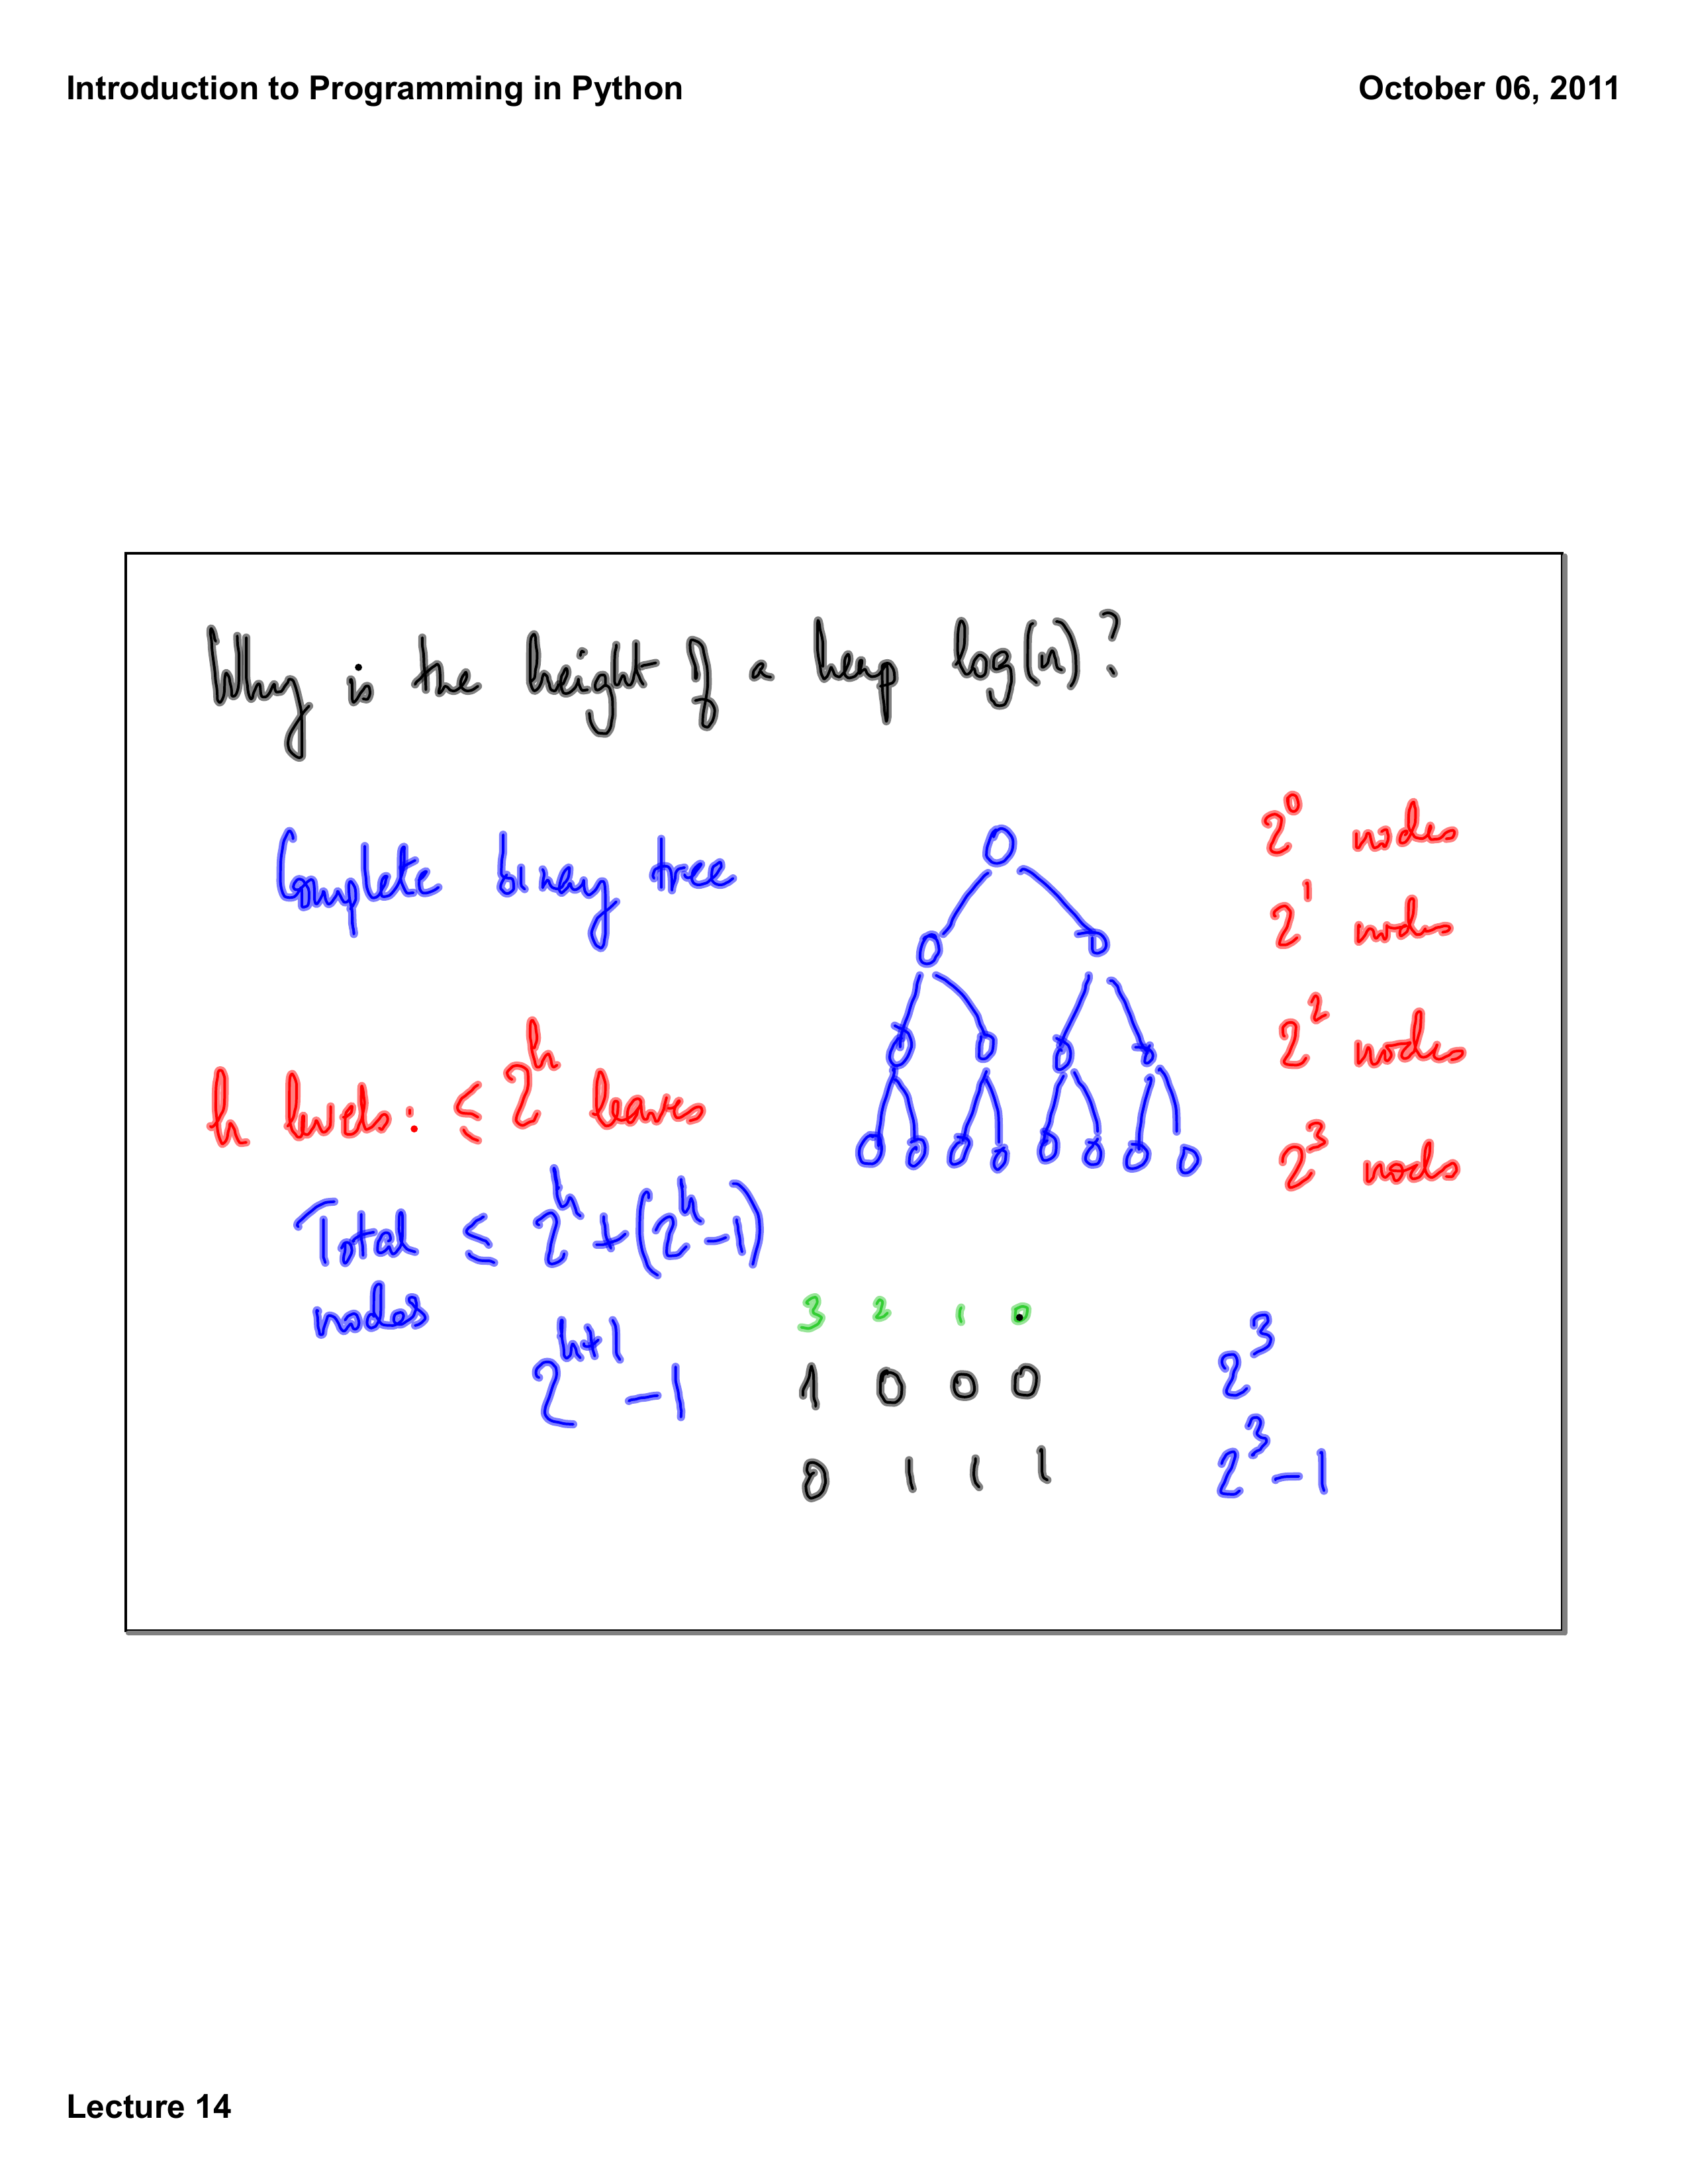 Introduction to Programming in Python
October 06, 2011
Why is the height of a heap log(n)?
Complete binary tree
2^0 nodes
2^1 nodes
2^2 nodes
2^3 nodes
h levels: ≤ 2^h leaves
Total ≤ 2^h + (2^h - 1)
nodes
2^{h+1} - 1
3 2 1 0
1 0 0 0
2^3
0 1 1 1
2^3 - 1
Lecture 14